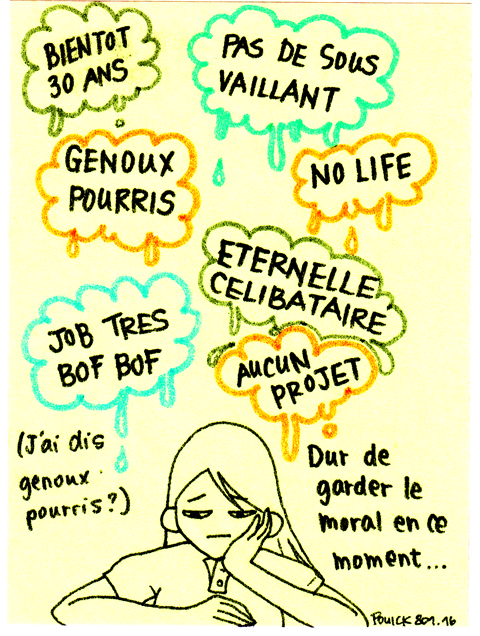 BIENTOT
30 ANS
PAS DE SOUS
VAILLANT
GENOUX
POURRIS
NO LIFE
ETERNELLE
CELIBATAIRE
JOB TRES
BOF BOF
AUCUN
PROJET
(J'ai dis
genoux
pourris?)
Dur de
garder le
moral en ce
moment...